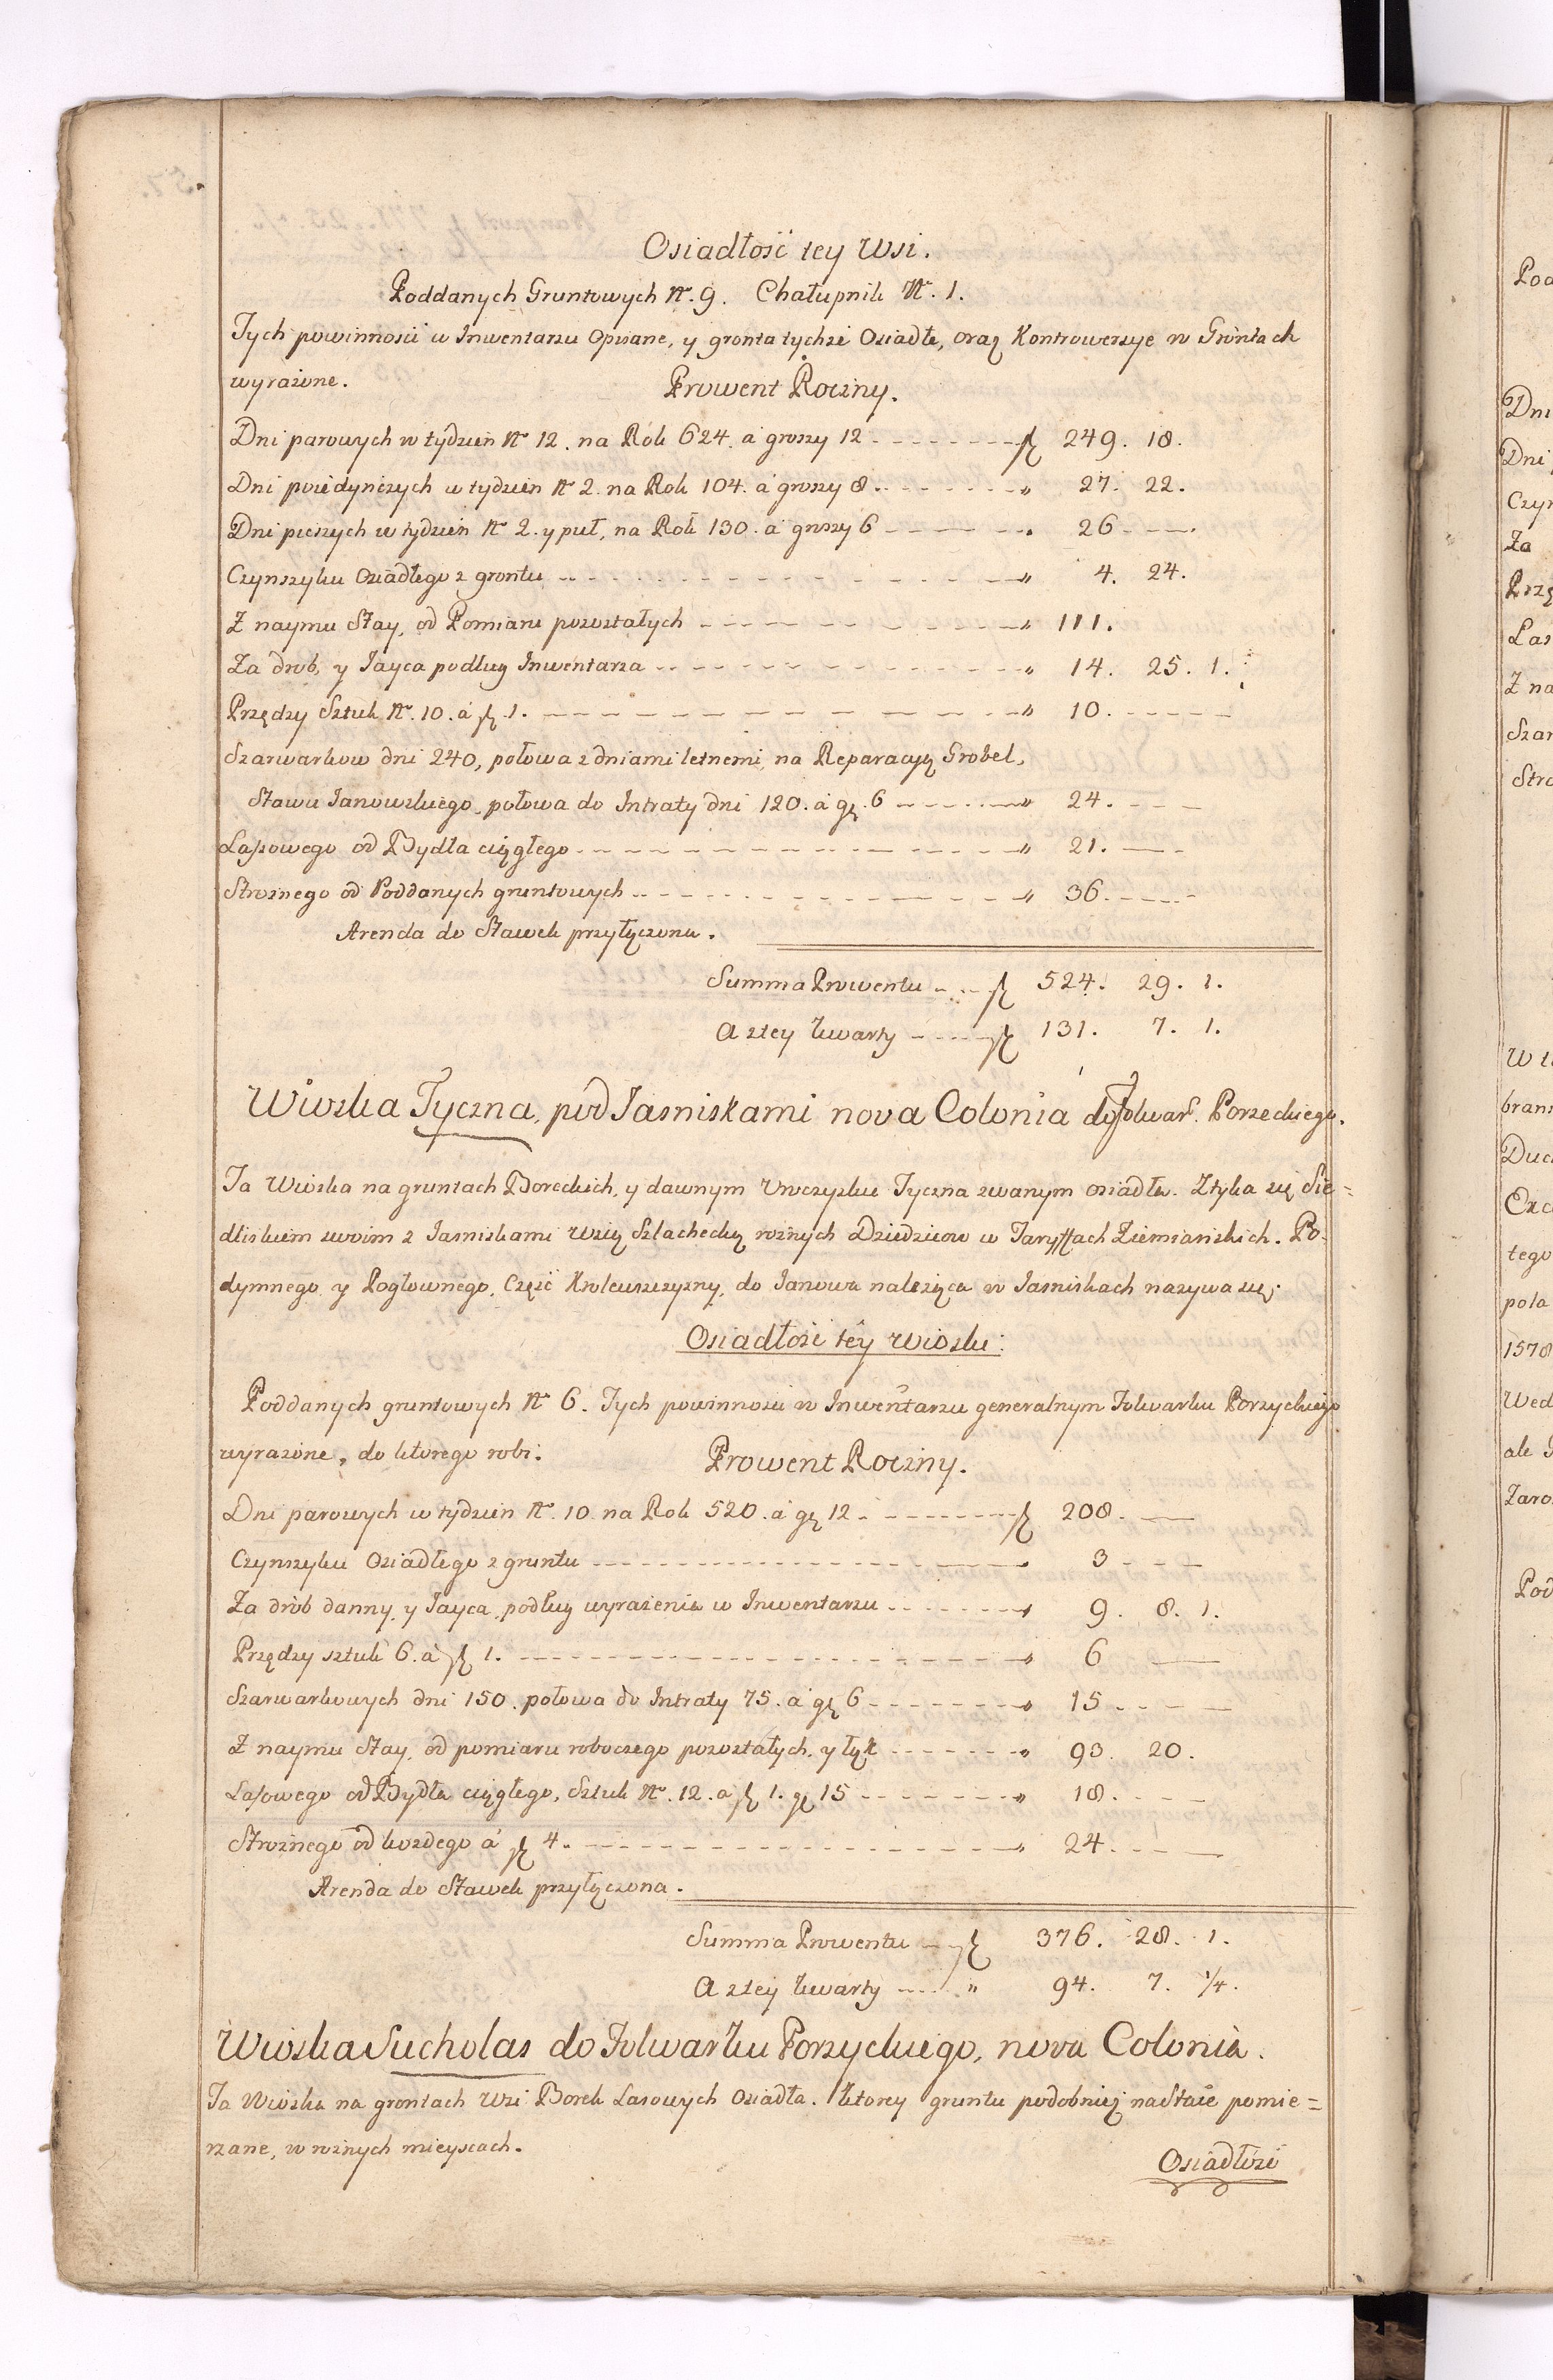 Osiadłość tey Wsi.
Poddanych Gruntowych N. 9. Chałupnik N. 1.
Tych powinności w Inwentarzu Opisane, y gronta tychże Osiadłe, oraz Kontrowersye w Grontach
wyrażone. Prowent Roczny.
Dni parowych w tydzień N 12. na Rok 624. a groszy 12 f 249. 18.
Dni poiedynczych w tydzień N 2. na Rok 104. a groszy 8. " 27. 22.
Dni pieszych w tydzień N 2. y puł, na Rok 130. a groszy 6 " 26
Czynszyku Osiadłego z grontu " 4. 24.
Z naymu Stay, od Pomiaru pozostałych " 111.
Za drob, y Jayca podług Inwentarza " 14. 25. 1.
Przędzy Sztuk N. 10. a f. 1. " 10.
Szarwarkow dni 240, połowa z dniami letnemi, na Reparacyą Grobel,
Stawu Janowskiego, połowa do Intraty dni 120. a gr. 6 " 24.
Lasowego od Bydła ciągłego " 21.
Strożnego od Poddanych gruntowych " 36.
Arenda do Stawek przyłączona.
Summa Prowentu f 524. 29. 1.
A z tey kwarty f 131. 7. 1.
Wioska Tyczna, pod Jasniskami nova Colonia do Folwar. Porzeckiego.
Ta Wioska na gruntach Boreckich, y dawnym Uroczysku Tyczna zwanym osiadła. Ztyka się Sie=
dliskiem swoim z Jasniskami wsią Szlachecką rożnych Dziedzicow w Taryffach Ziemiańskich. Po-
dymnego y Pogłownego, Część Krolewszczyzny, do Janowa należąca w Jasniskach nazywa się.
Osiadłość tey wioski:
Poddanych gruntowych N 6. Tych powinności w Inwentarzu generalnym Folwarku Porzyckiego
wyrażone, do ktorego robi: Prowent Roczny.
Dni parowych w tydzień N. 10. na Rok 520. a gr 12 f 208.
Czynszyku Osiadłego z gruntu 3
Za drób danny, y Jayca, podług wyrażenia w Inwentarzu " 9. 8. 1.
Przędzy sztuk 6. a f 1. " 6
Szarwarkowych dni 150. połowa do Intraty 75. a gr 6 " 15
Z naymu Stay, od pomiaru roboczego pozostałych, y łąk " 93. 20.
Lasowego od Bydła ciągłego, Sztuk N. 12. a f 1. gr 15 " 18.
Strożnego od każdego a f 4. " 24.
Arenda do Stawek przyłączona.
Summa Prowentu f 376. 28. 1.
A z tey kwarty " 94. 7. 1/4.
Wioska Sucholas do Folwarku Porzyckiego, nova Colonia.
Ta Wioska na grontach Wsi Borek Lasowych Osiadła. Ktorey gruntu podobnież na Staie pomie=
rzane, w rożnych mieyscach.
Osiadłość